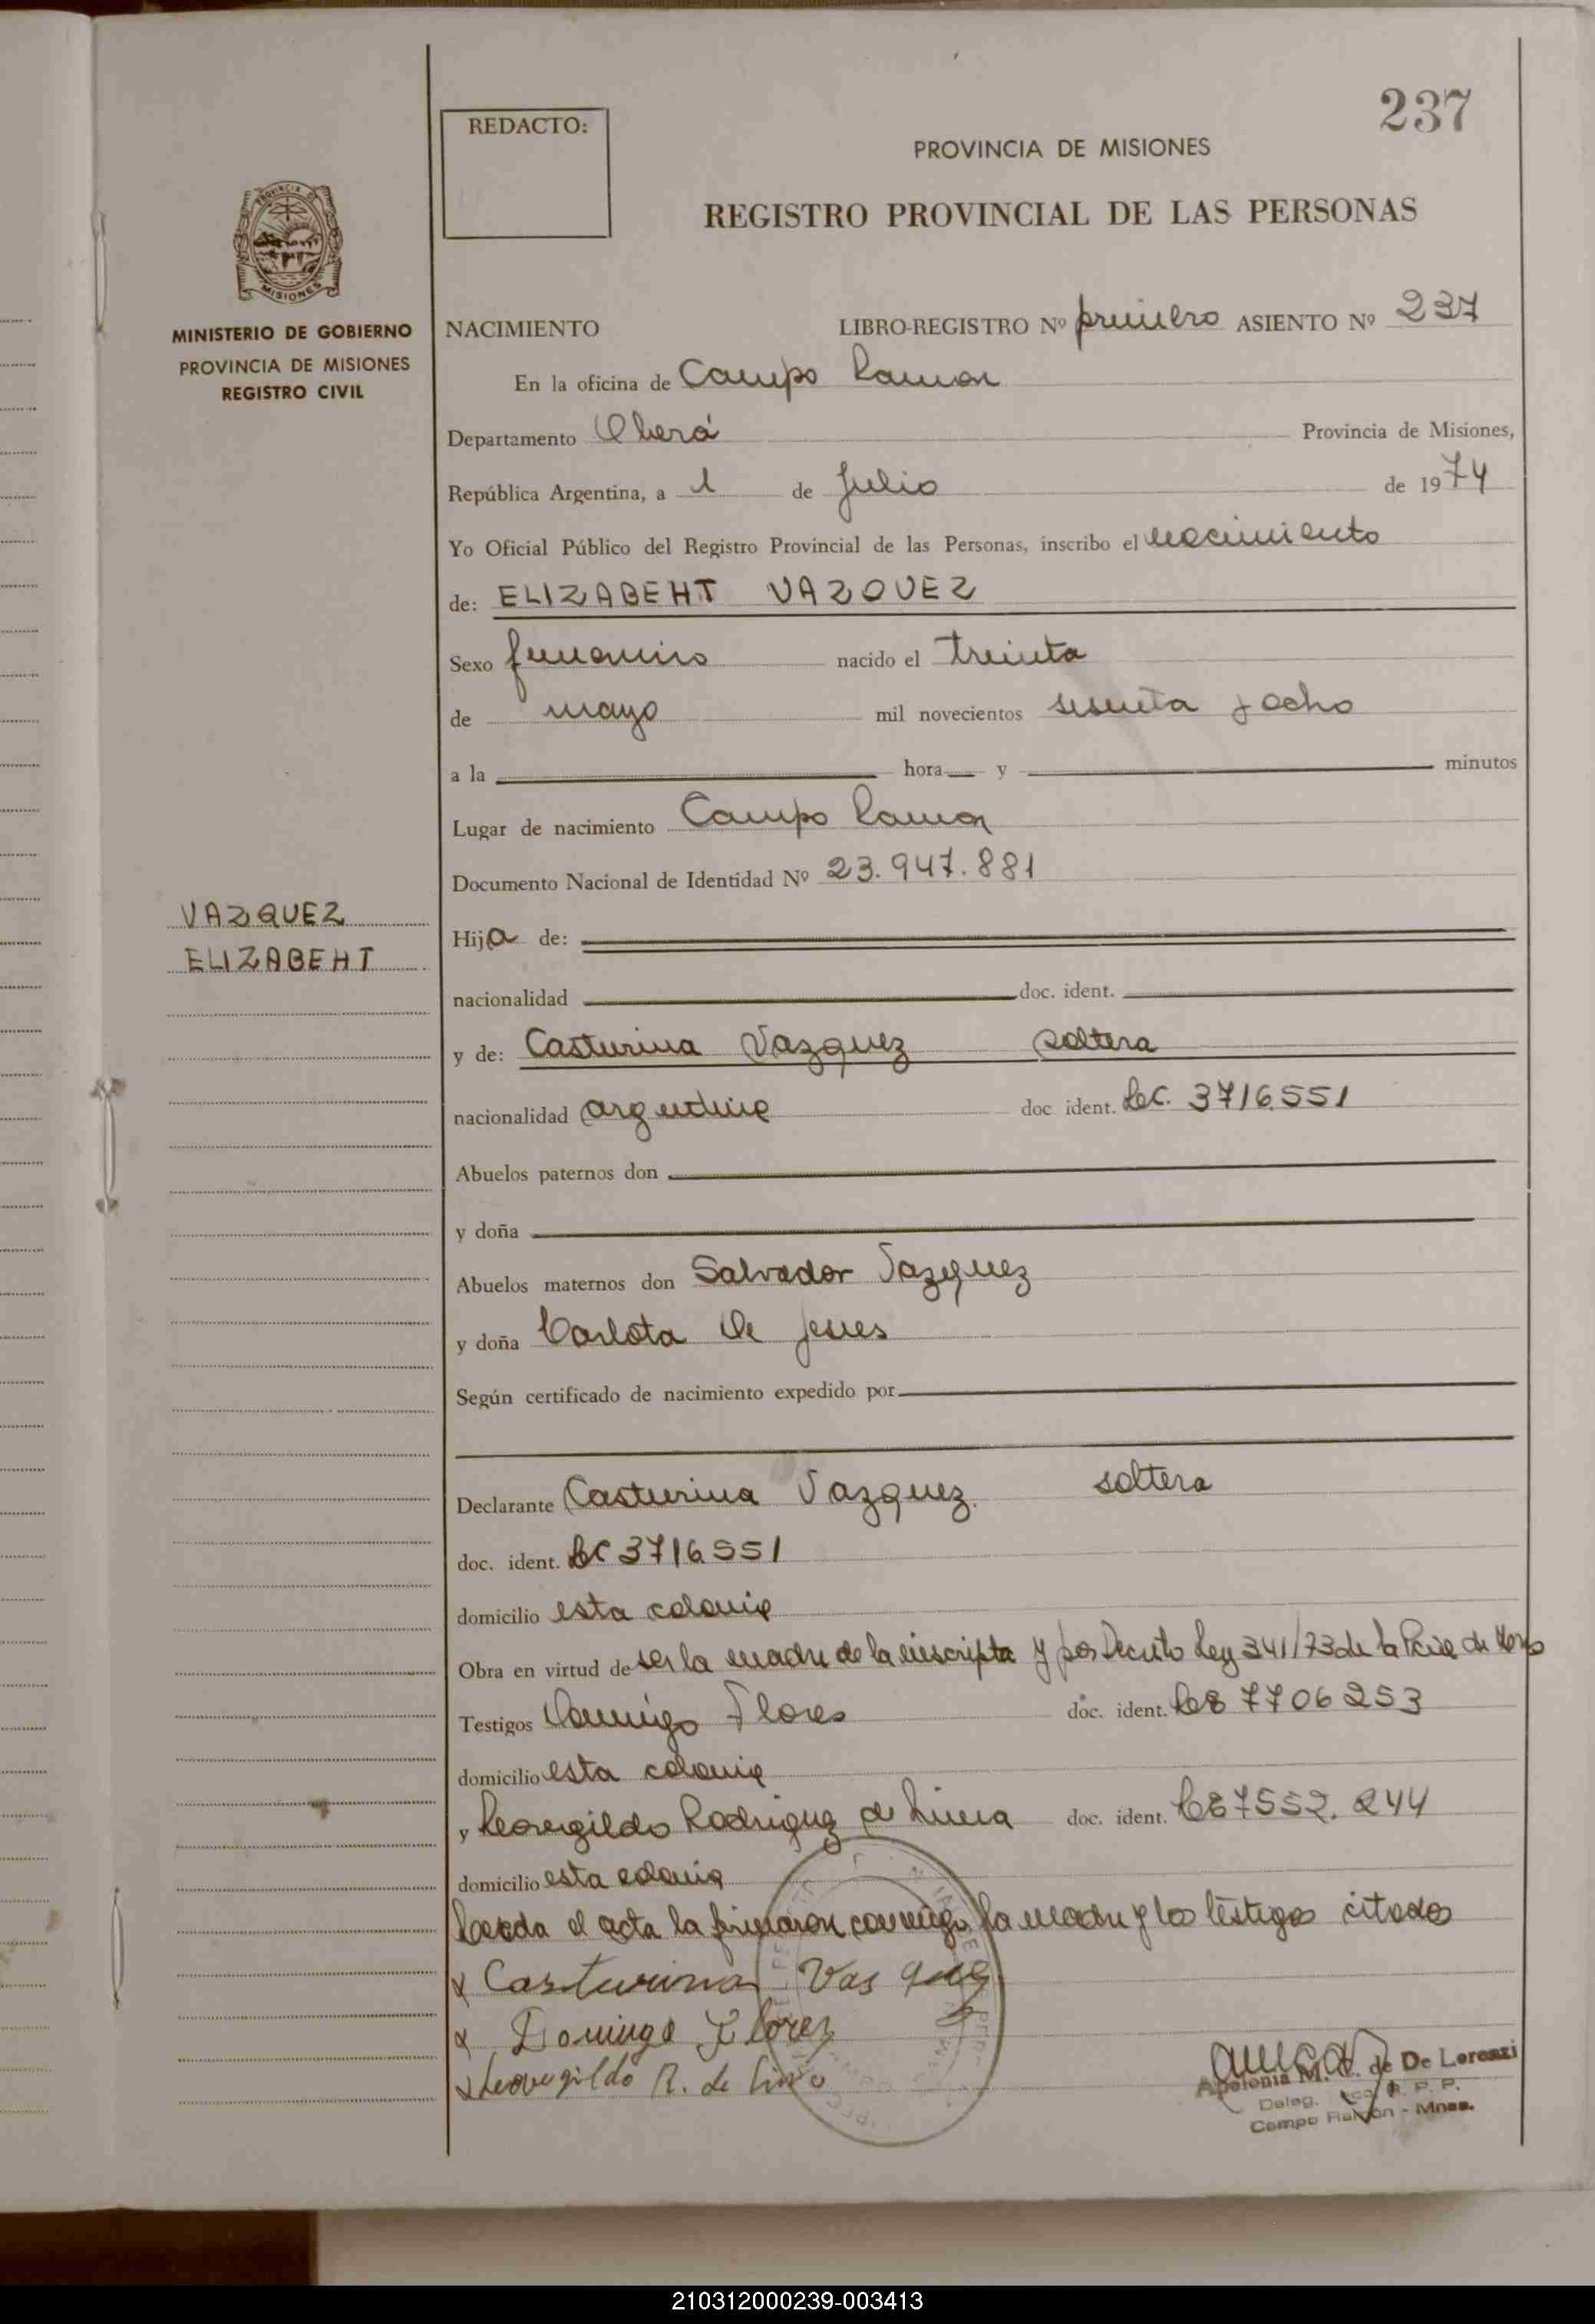 237
REDACTO:
PROVINCIA DE MISIONES
REGISTRO PROVINCIAL DE LAS PERSONAS
MISIONES
MINISTERIO DE GOBIERNO
PROVINCIA DE MISIONES
REGISTRO CIVIL
NACIMIENTO LIBRO-REGISTRO Nº primero ASIENTO Nº 237
En la oficina de Campo Ramon
Departamento Oberá Provincia de Misiones,
República Argentina, a 1 de Julio de 1974
Yo Oficial Público del Registro Provincial de las Personas, inscribo el nacimiento
de: ELIZABEHT VAZQUEZ
Sexo femenino nacido el treinta
de mayo mil novecientos sesenta y ocho
a la hora y minutos
Lugar de nacimiento Campo Ramon
Documento Nacional de Identidad Nº 23.947.881
VAZQUEZ
ELIZABEHT
Hija de:
nacionalidad doc. ident.
y de: Casturina Vazquez soltera
nacionalidad argentina doc ident. L.C. 3716551
Abuelos paternos don
y doña
Abuelos maternos don Salvador Vazquez
y doña Carlota de Jesus
Según certificado de nacimiento expedido por
Declarante Casturina Vazquez. soltera
doc. ident. LC 3716551
domicilio esta colonia
Obra en virtud de ser la madre de la inscripta y por Decreto Ley 341/73 de la Pcia de
Testigos Domingo Flores doc. ident. 7706253
domicilio esta colonia
y Leovegildo Rodriguez de Lima doc. ident. 7552.244
domicilio esta colonia
Leida el acta la firmaron conmigo, la madre y los testigos citados
x Casturina Vasquez
x Domingo Florez
x Leovegildo R. de Lima
Apolonia M. de De Lorenzi
Deleg. R. P. P.
Campo Ramón - Mnes.
210312000239-003413